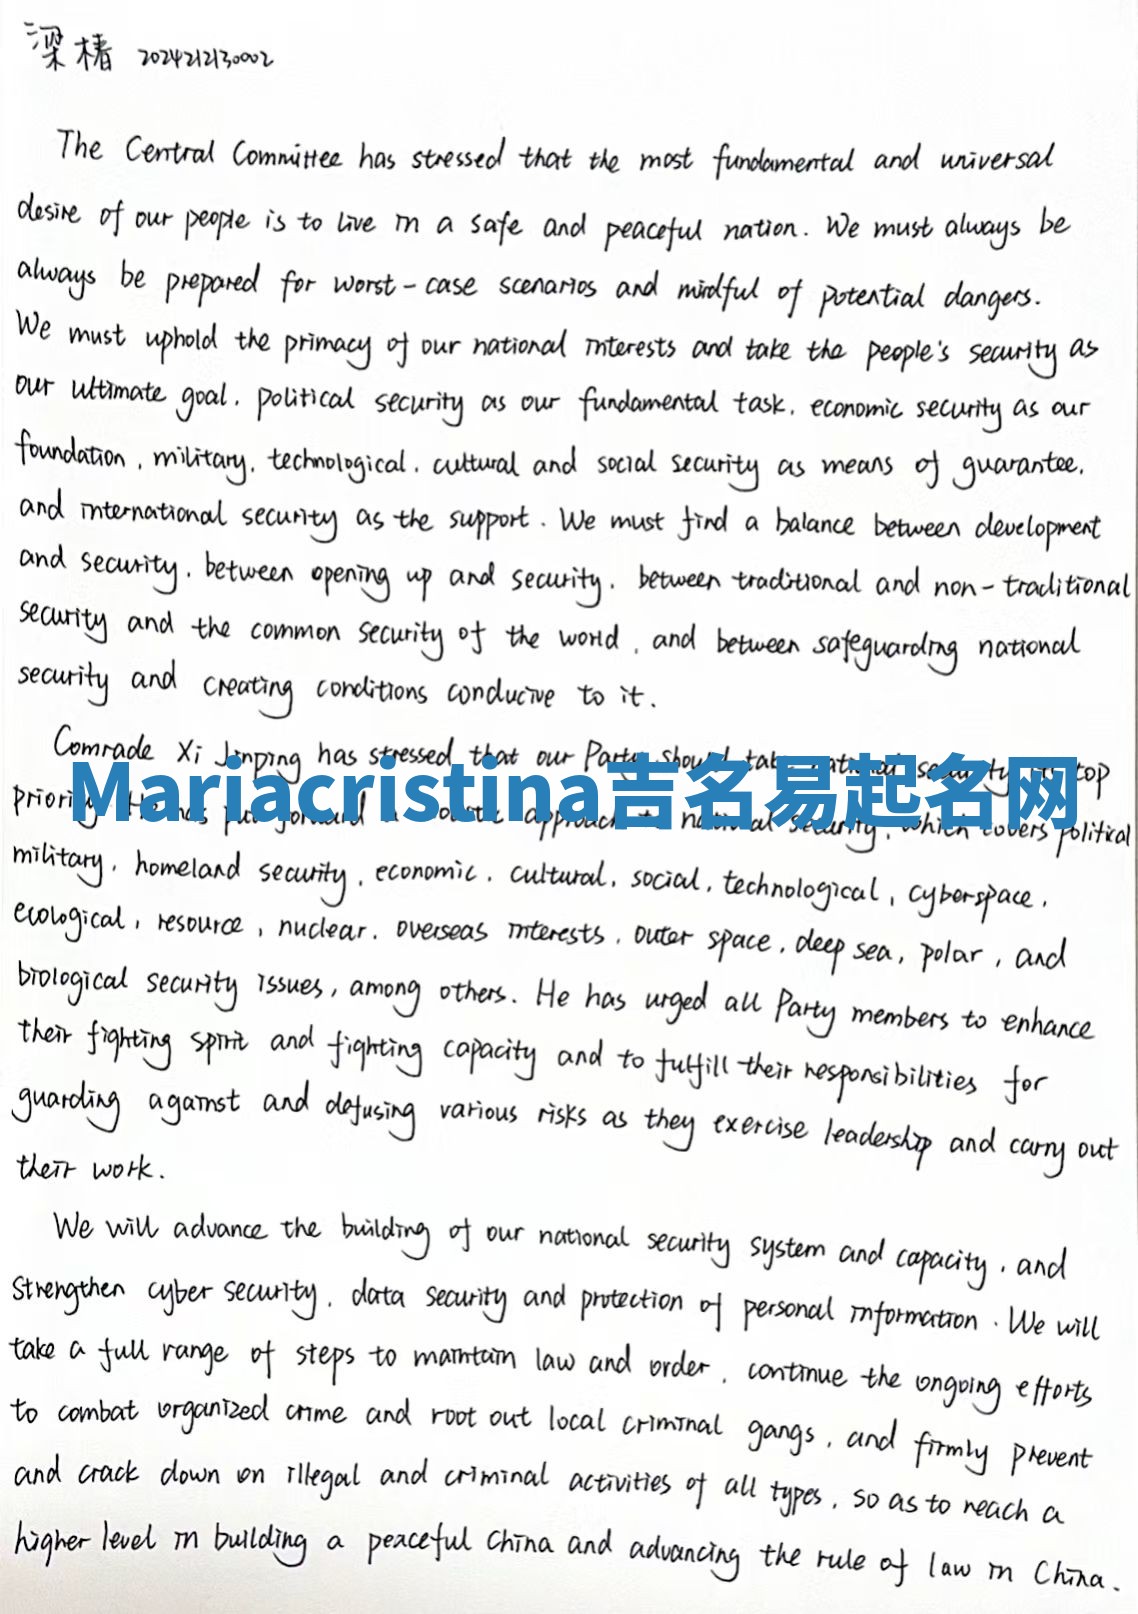 梁椿 2024212130002
The Central Committee has stressed that the most fundamental and universal
desire of our people is to live in a safe and peaceful nation. We must always be
always be prepared for worst-case scenarios and mindful of potential dangers.
We must uphold the primacy of our national interests and take the people's security as
our ultimate goal, political security as our fundamental task, economic security as our
foundation, military, technological, cultural and social security as means of guarantee,
and international security as the support. We must find a balance between development
and security, between opening up and security, between traditional and non-traditional
security and the common security of the world, and between safeguarding national
security and creating conditions conducive to it.
Comrade Xi Jinping has stressed that our Party should take national security top
Mariacristina吉名易起名网
priority. He has put forward a approach to national security, which covers political
military, homeland security, economic, cultural, social, technological, cyberspace,
ecological, resource, nuclear, overseas interests, outer space, deep sea, polar, and
biological security issues, among others. He has urged all Party members to enhance
their fighting spirit and fighting capacity and to fulfill their responsibilities for
guarding against and defusing various risks as they exercise leadership and carry out
their work.
We will advance the building of our national security system and capacity, and
strengthen cyber security, data security and protection of personal information. We will
take a full range of steps to maintain law and order, continue the ongoing efforts
to combat organized crime and root out local criminal gangs, and firmly prevent
and crack down on illegal and criminal activities of all types, so as to reach a
higher level in building a peaceful China and advancing the rule of law in China.